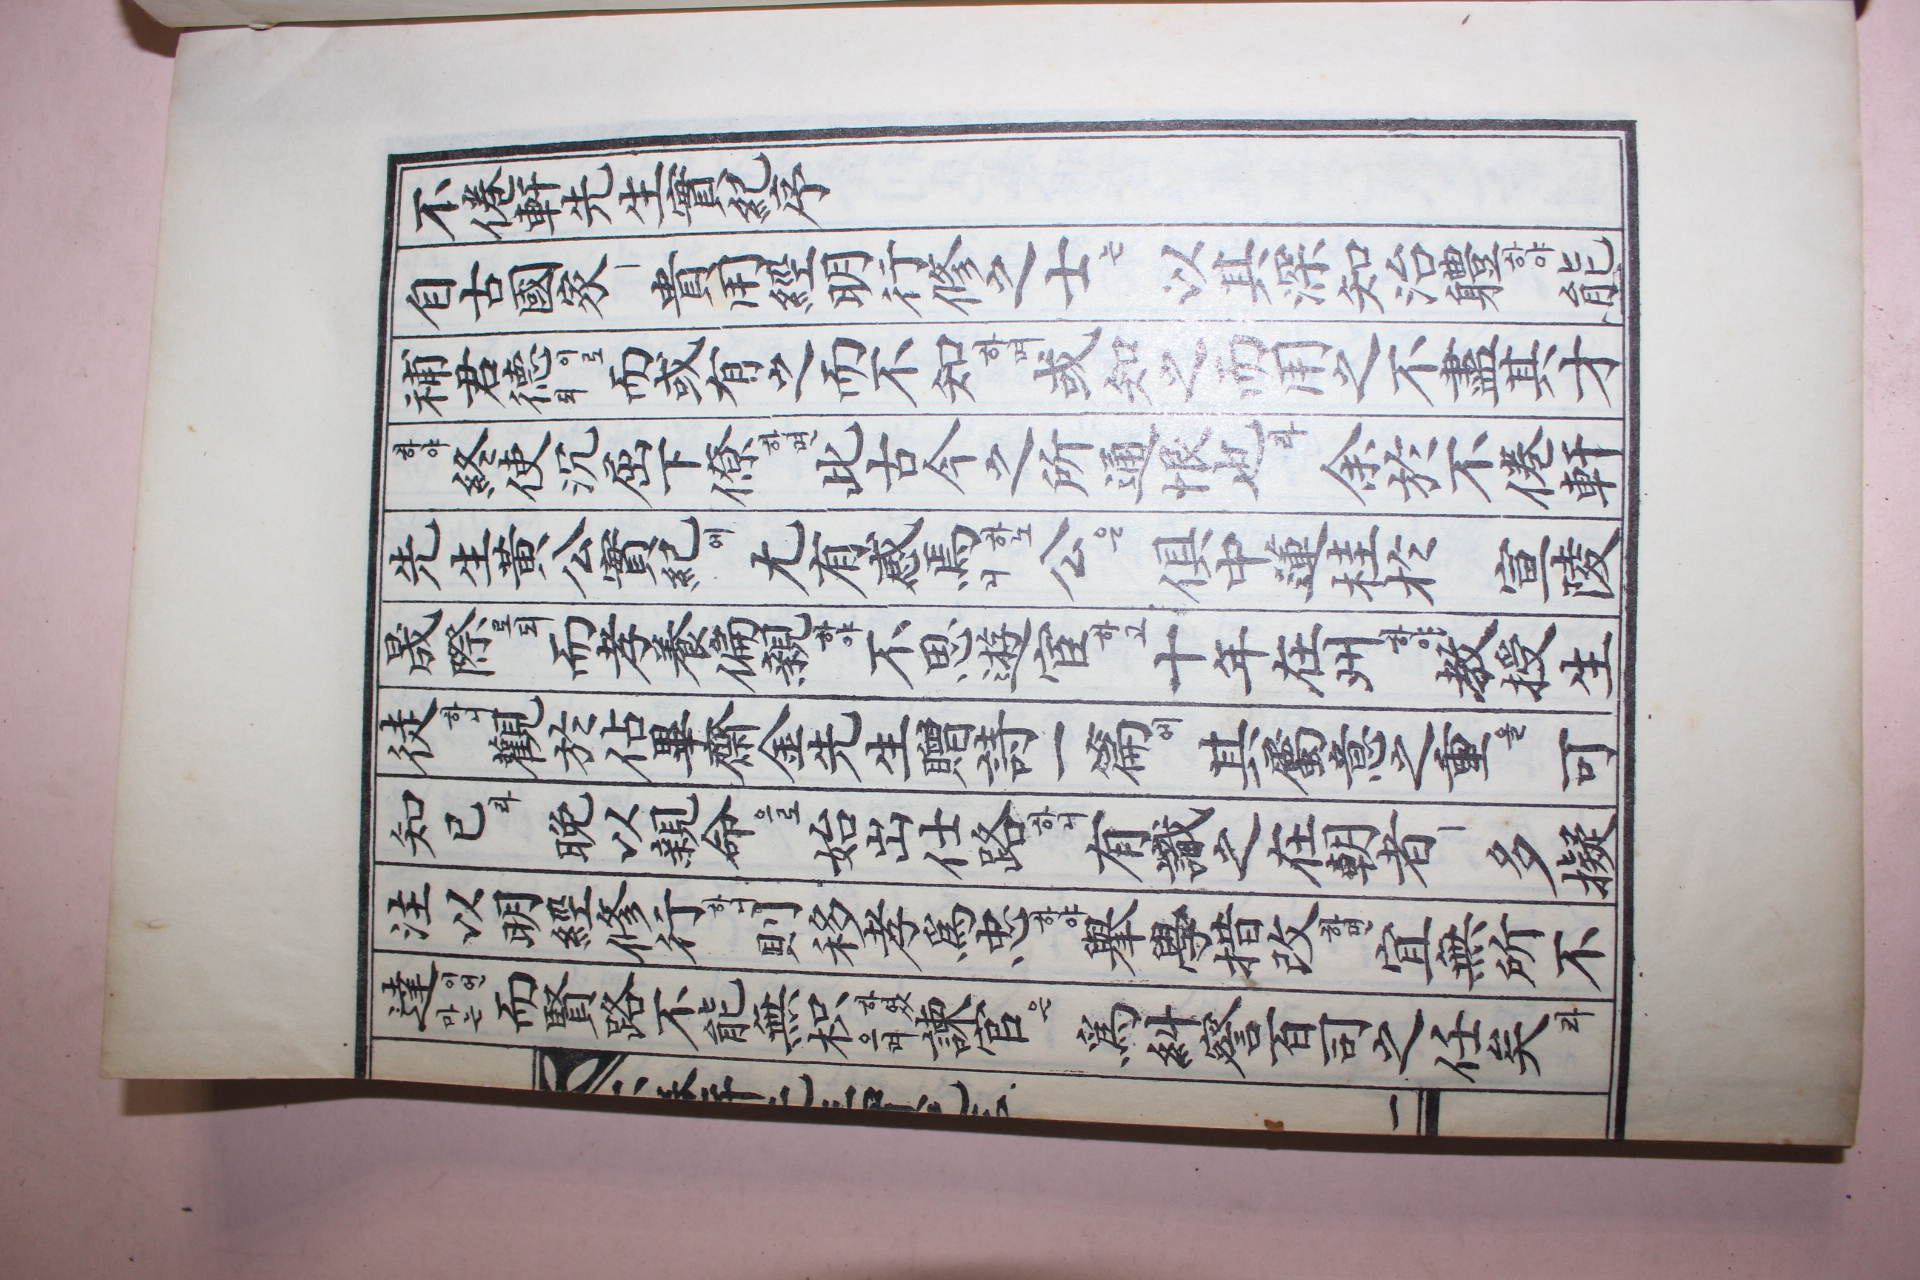 不倦軒先生實紀序
自古國家ㅣ貴用經明行修之士는以其深知治軆하야能
補君德이로되而或有之而不知하며或知之而用之不盡其才
하야終使沉屈下僚하면此古今之所通恨也라余於不倦軒
先生黃公實紀에尤有感焉하노니公은俱中蓮桂於宣陵
晟際로되而孝養偏親하야不思遊宦하고十年在州하야敎授生
徒하니觀於佔畢齋金先生贈詩一篇에其屬意之重을可
知已라晩以親命으로始出仕路하니有識之在朝者ㅣ多擬
注以明經修行하니則移孝爲忠하야擧學措政하면宜無所不
達이언마는而賢路不能無枳하얏으며諫官은爲糾詧百司之任矣라
一